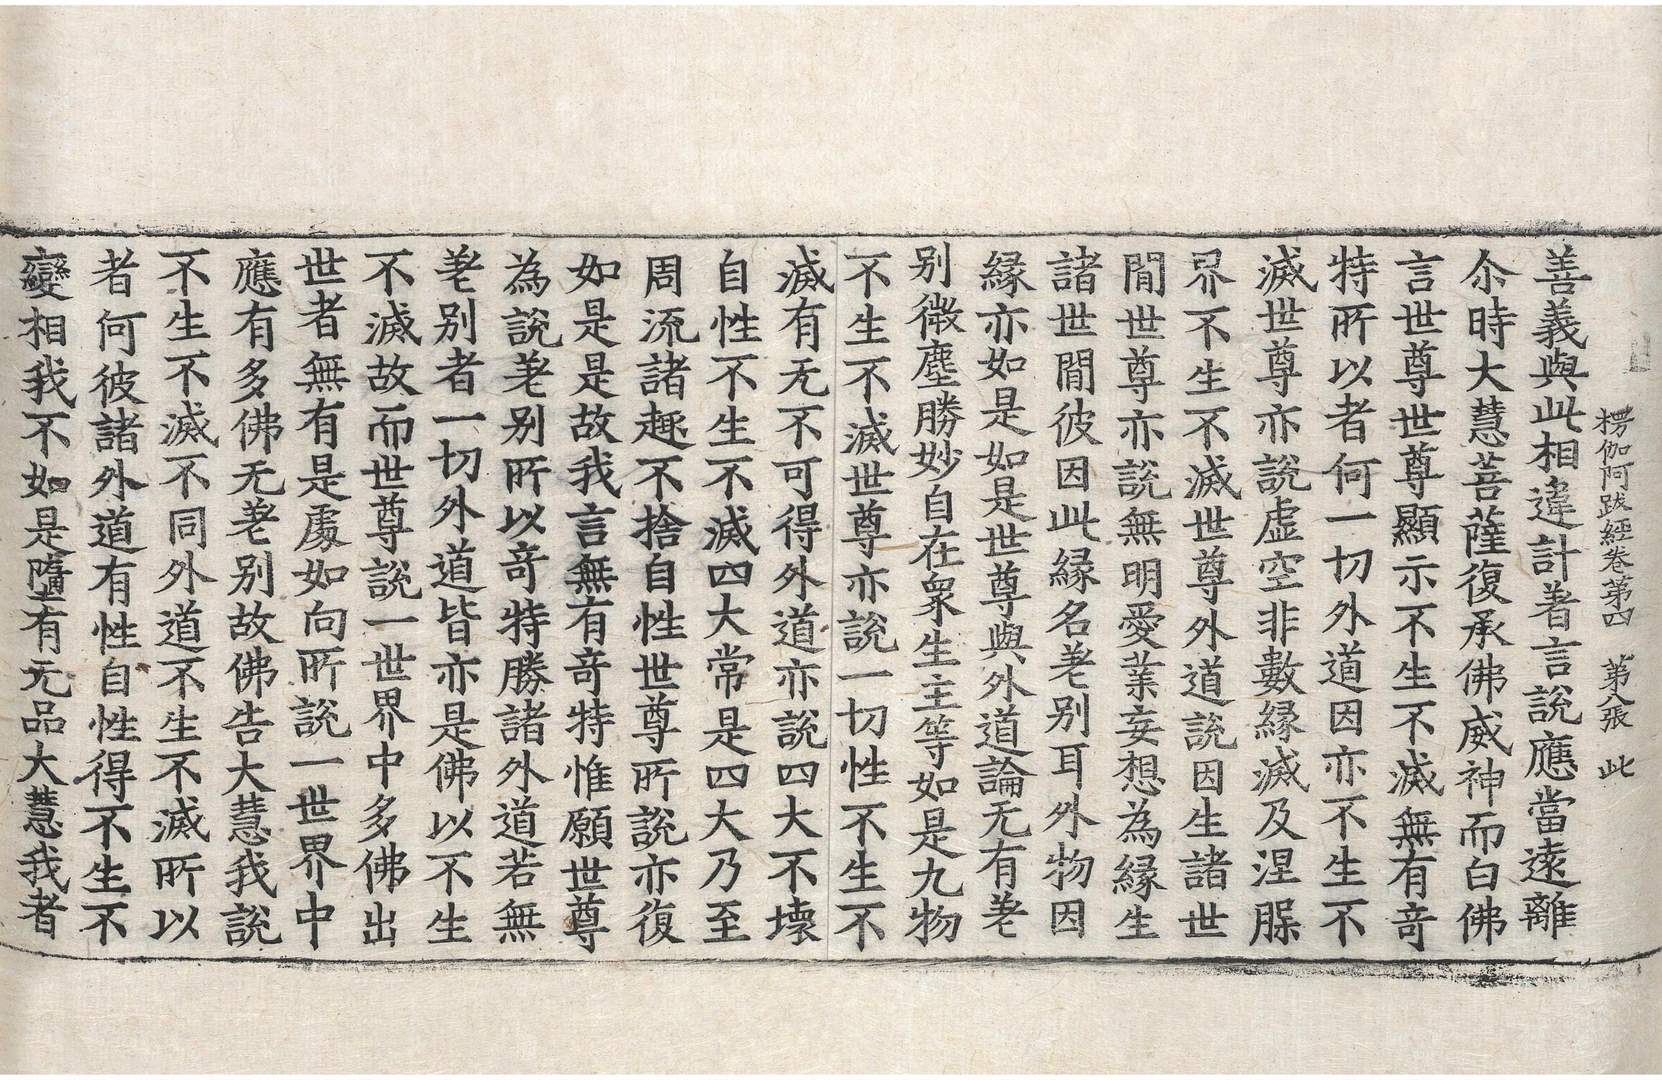 楞伽阿跋經卷第四　第八張　此
善義與此相違計著言說應當遠離
尒時大慧菩薩復承佛威神而白佛
言世尊世尊顯示不生不滅無有竒
特所以者何一切外道因亦不生不
滅世尊亦說虛空非數緣滅及涅脲
界不生不滅世尊外道說因生諸世
閒世尊亦說無明愛業妄想為緣生
諸世閒彼因此緣名差別耳外物因
緣亦如是如是世尊與外道論无有差
别微塵勝妙自在衆生主等如是九物
不生不滅世尊亦說一切性不生不
滅有无不可得外道亦說四大不壞
自性不生不滅四大常是四大乃至
周流諸趣不捨自性世尊所說亦復
如是是故我言無有竒特惟願世尊
為說差别所以竒特勝諸外道若無
差别者一切外道皆亦是佛以不生
不滅故而世尊說一世界中多佛出
世者無有是處如向所說一世界中
應有多佛无差别故佛告大慧我說
不生不滅不同外道不生不滅所以
者何彼諸外道有性自性得不生不
變相我不如是墮有无品大慧我者